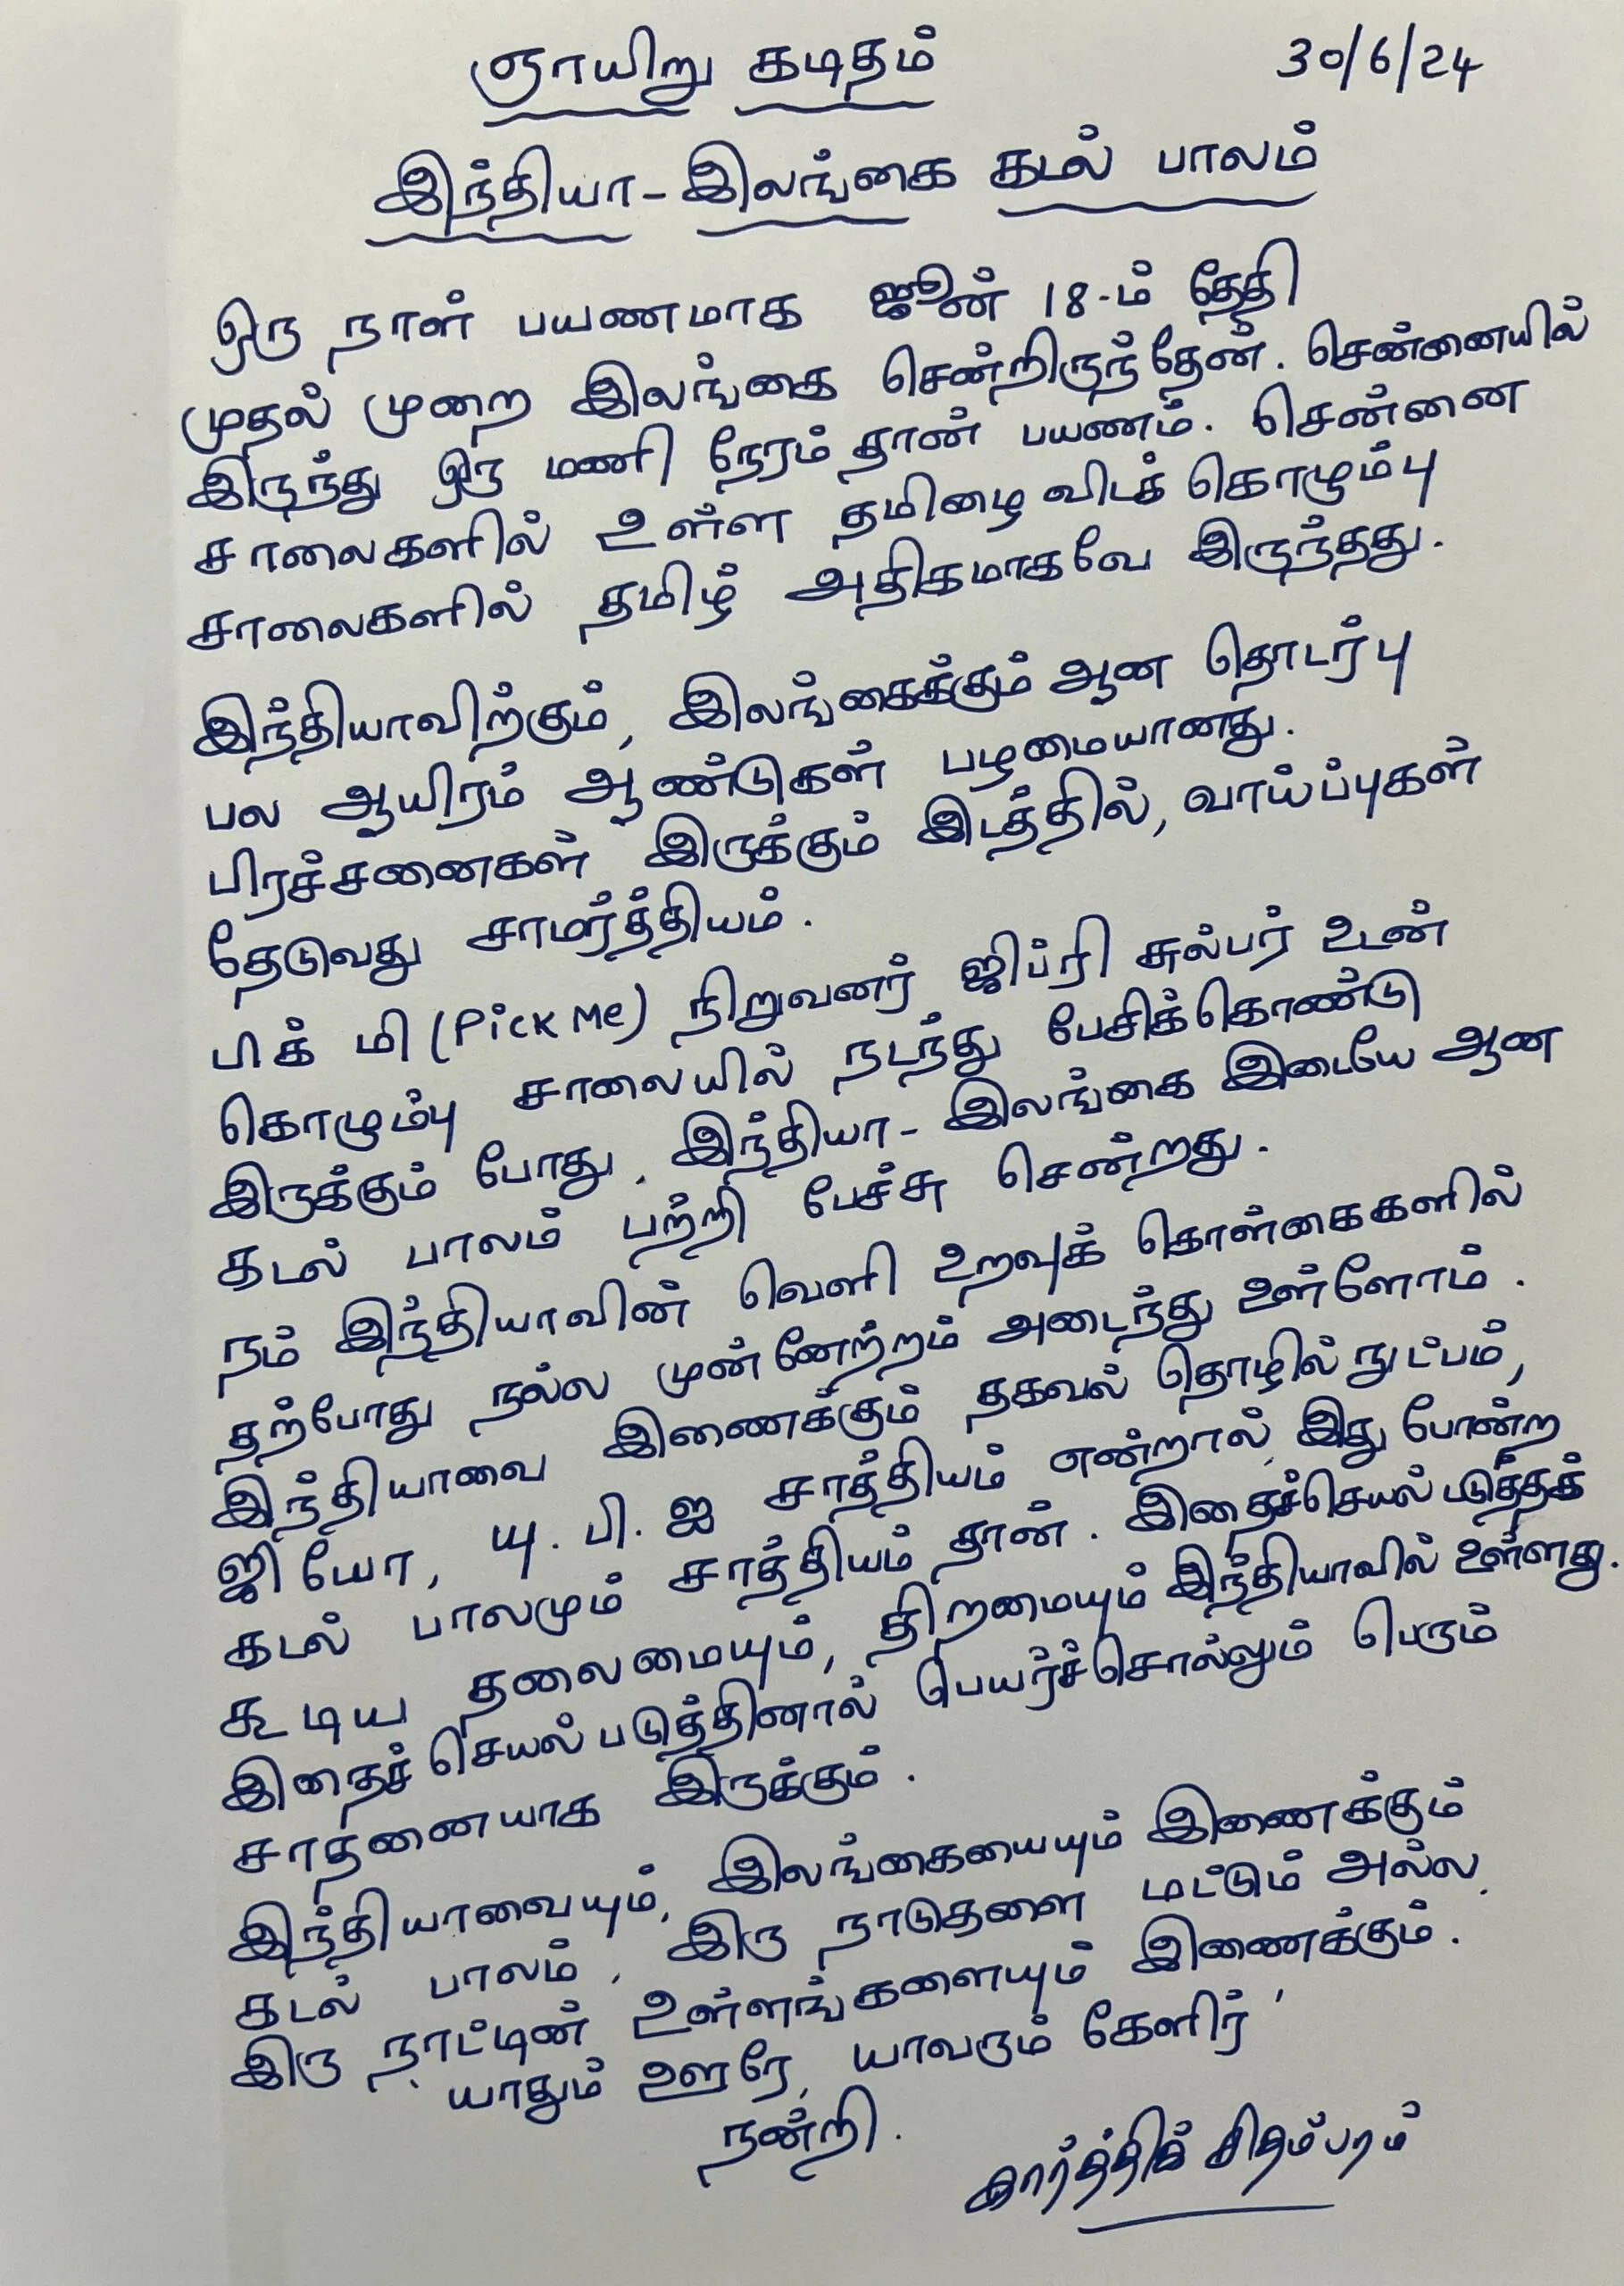 ஞாயிறு கடிதம் 30/6/24
இந்தியா - இலங்கை கடல் பாலம்
ஒரு நாள் பயணமாக ஜூன் 18-ம் தேதி
முதல் முறை இலங்கை சென்றிருந்தேன். சென்னையில்
இருந்து ஒரு மணி நேரம் தான் பயணம். சென்னை
சாலைகளில் உள்ள தமிழை விடக் கொழும்பு
சாலைகளில் தமிழ் அதிகமாகவே இருந்தது.
இந்தியாவிற்கும், இலங்கைக்கும் ஆன தொடர்பு
பல ஆயிரம் ஆண்டுகள் பழமையானது.
பிரச்சனைகள் இருக்கும் இடத்தில், வாய்ப்புகள்
தேடுவது சாமர்த்தியம்.
பிக் மி (Pick Me) நிறுவனர் ஜிப்ரி சுல்பர் உடன்
கொழும்பு சாலையில் நடந்து பேசிக்கொண்டு
இருக்கும் போது, இந்தியா - இலங்கை இடையே ஆன
கடல் பாலம் பற்றி பேச்சு சென்றது.
நம் இந்தியாவின் வெளி உறவுக் கொள்கைகளில்
தற்போது நல்ல முன்னேற்றம் அடைந்து உள்ளோம்.
இந்தியாவை இணைக்கும் தகவல் தொழில் நுட்பம்,
ஜியோ, யு. பி. ஐ சாத்தியம் என்றால், இது போன்ற
கடல் பாலமும் சாத்தியம் தான். இதைச்செயல் படுத்தக்
கூடிய தலைமையும், திறமையும் இந்தியாவில் உள்ளது.
இதைச் செயல் படுத்தினால் பெயர்ச்சொல்லும் பெரும்
சாதனையாக இருக்கும்.
இந்தியாவையும், இலங்கையையும் இணைக்கும்
கடல் பாலம், இரு நாடுதளை மட்டும் அல்ல,
இரு நாட்டின் உள்ளங்களையும் இணைக்கும்.
' யாதும் ஊரே, யாவரும் கேளிர் '
நன்றி.
கார்த்திக் சிதம்பரம்